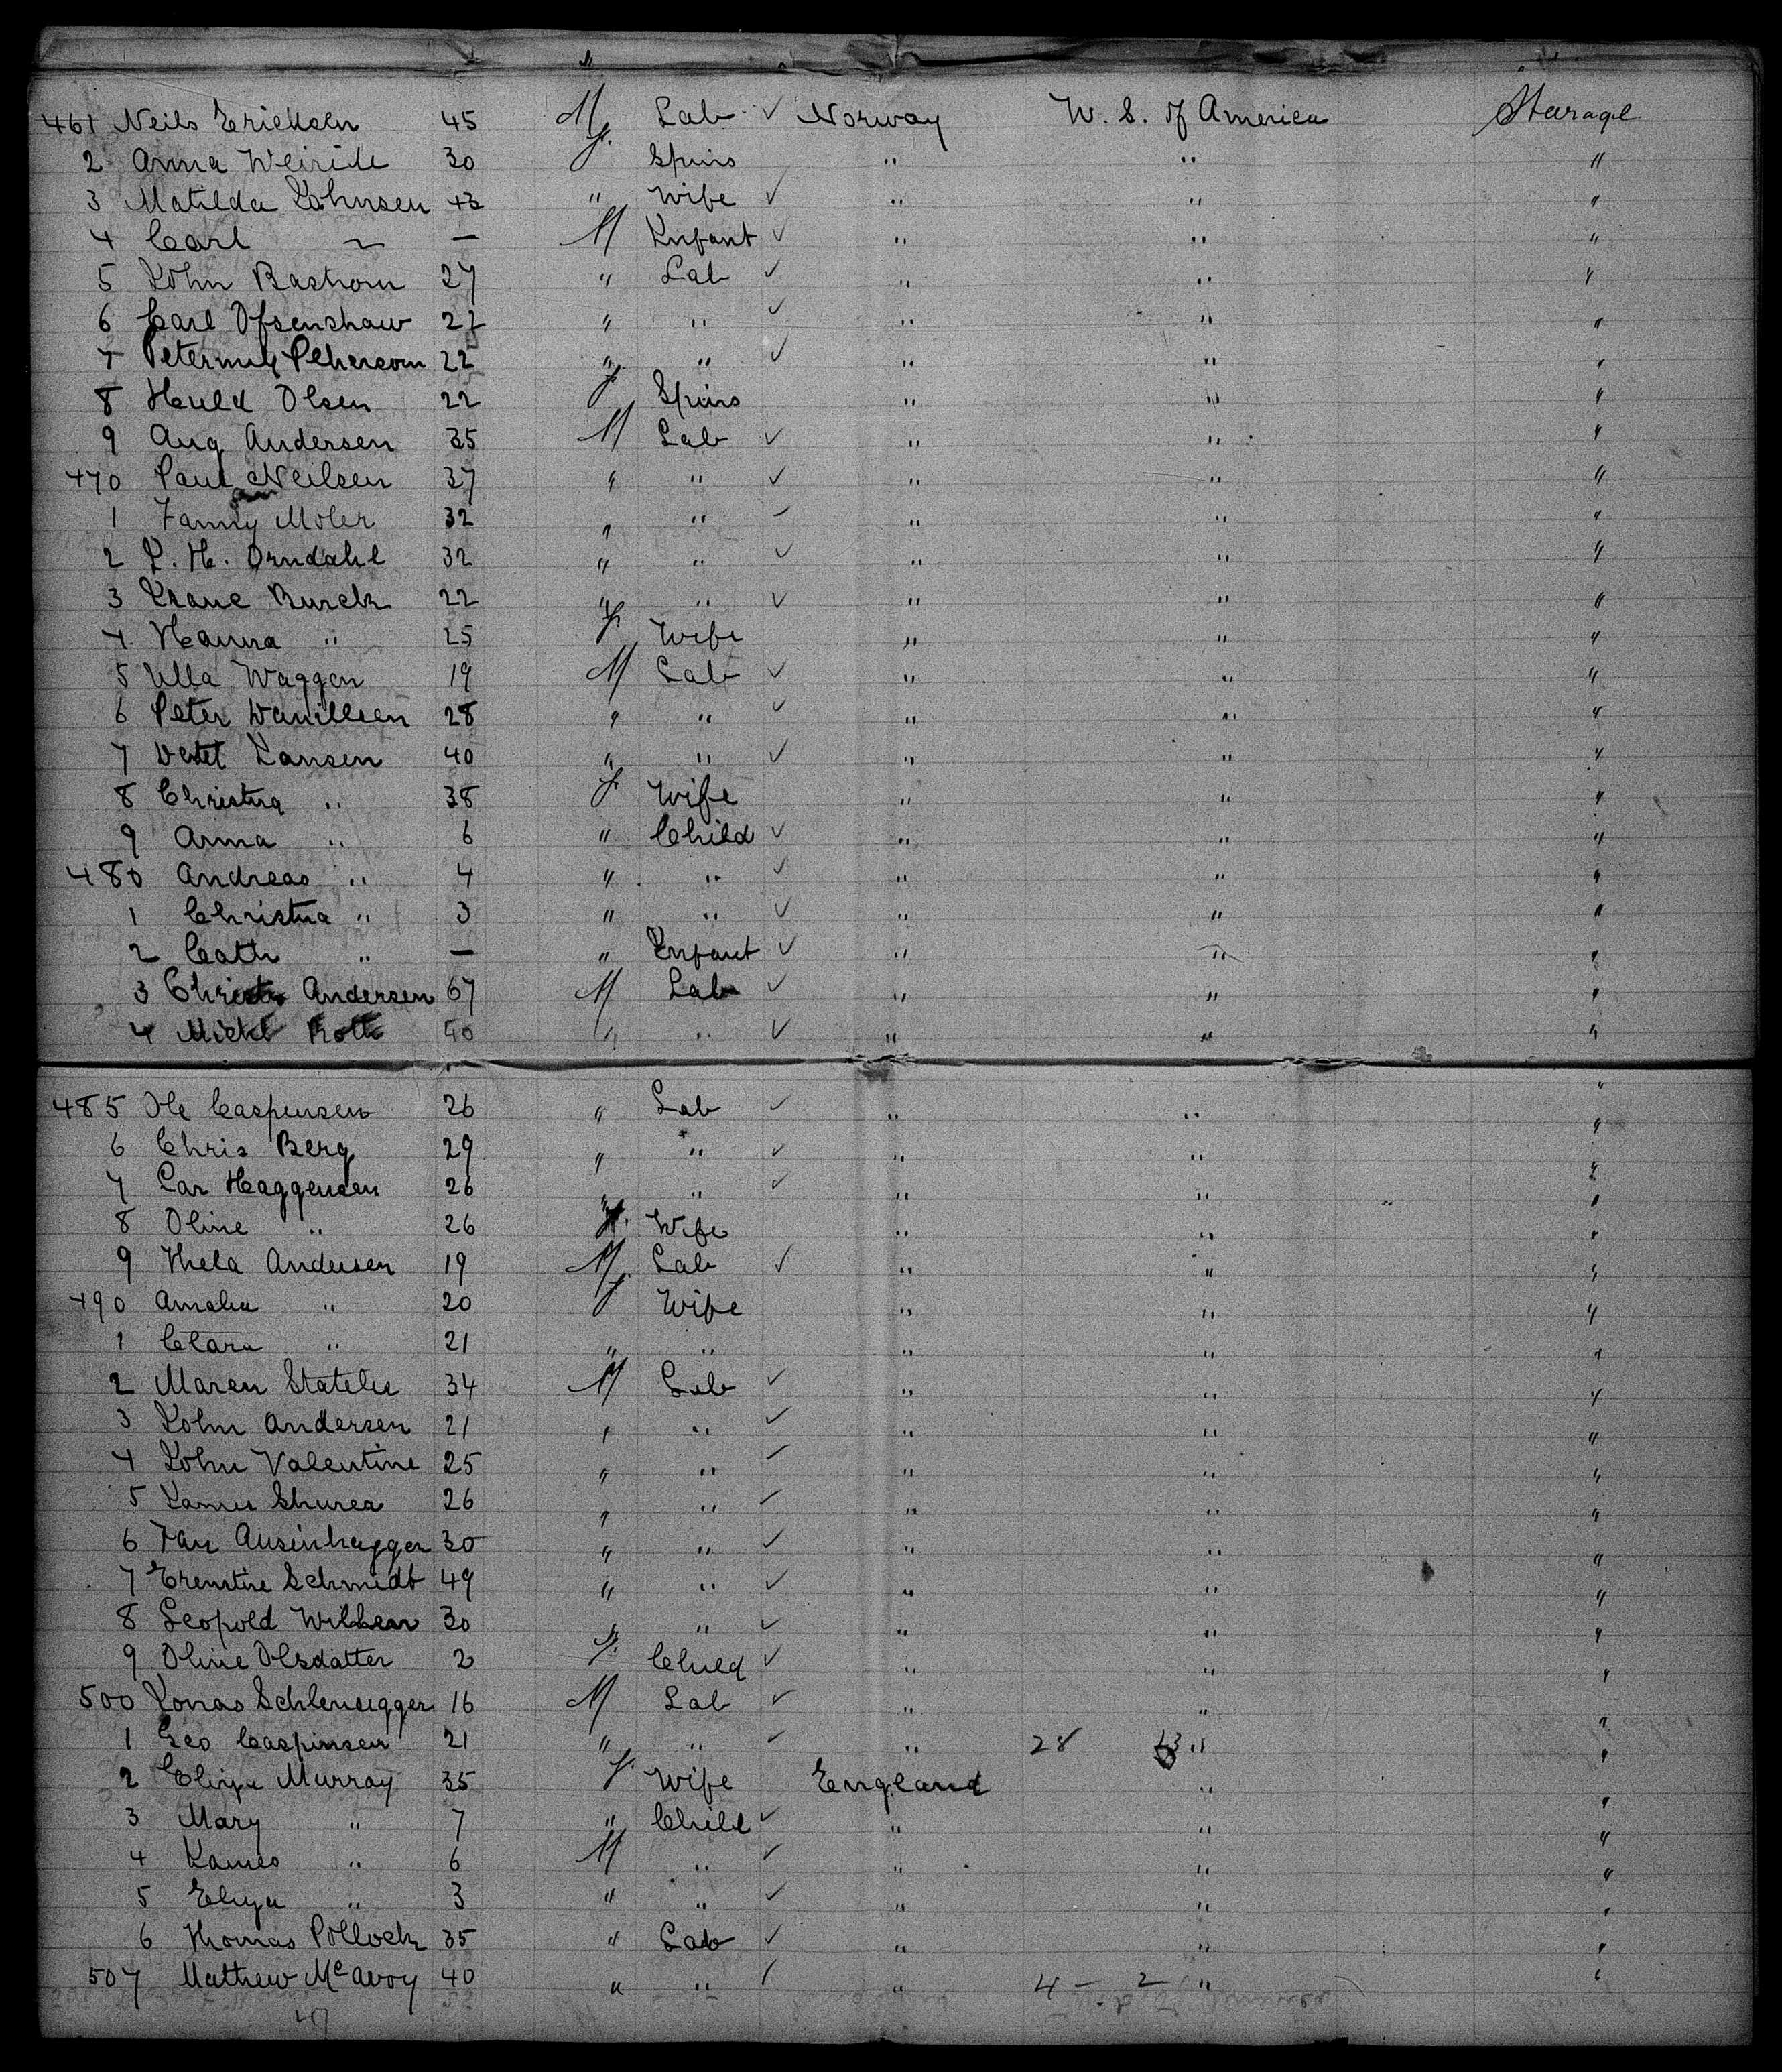 461 Neils Ericksen 45 M Lab ✓ Norway U. S. of America Sterage
2 Anna Weiride 30 F. Spins " " "
3 Matilda Johnsen 43 " Wife ✓ " " "
4 Carl " — M Infant ✓ " " "
5 John Bastrom 27 " Lab ✓ " " "
6 Carl Ofsenshaw 27 " " ✓ " " "
7 22 " " ✓ " " "
8 Huld Olsen 22 F Spins " " "
9 Aug Andersen 35 M Lab ✓ " " "
470 Paul Neilsen 37 " " ✓ " " "
1 Fanny Moler 32 " " ✓ " " "
2 L. H. Orndahl 32 " " ✓ " " "
3 Burck 22 " " ✓ " " "
4 Hanna " 25 F Wife " " "
5 Ulla Waggen 19 M Lab ✓ " " "
6 Peter Danillsen 28 " " ✓ " " "
7 Jansen 40 " " ✓ " " "
8 Christna " 38 F Wife " " "
9 Anna " 6 " Child ✓ " " "
480 Andreas " 4 " " ✓ " " "
1 Christna " 3 " " ✓ " " "
2 Cath " — " Infant ✓ " " "
3 Christn Andersen 67 M Lab ✓ " " "
4 Michl Roth 40 " " ✓ " " "
485 Ole Caspensen 26 " Lab ✓ " " "
6 Chris Berg 29 " " ✓ " " "
7 Lar Haggensen 26 " " ✓ " " "
8 Oline " 26 F. Wife " " "
9 Thela Andersen 19 M Lab ✓ " " "
490 Amalia " 20 F Wife " " "
1 Clara " 21 " " " " "
2 Maren Statelie 34 M Lab ✓ " " "
3 John Andersen 21 " " ✓ " " "
4 John Valentine 25 " " ✓ " " "
5 James Shurea 26 " " ✓ " " "
6 Ausenhagger 30 " " ✓ " " "
7 Erenstine Schmidt 49 " " ✓ " " "
8 Leopold Wilhem 30 " " ✓ " " "
9 Oline Olsdatter 2 F. Child ✓ " " "
500 Jonas Schlenugger 16 M Lab ✓ " " "
1 Geo Caspinsen 21 " " ✓ " 28 13 " "
2 Eliza Murray 35 F. Wife England " "
3 Mary " 7 " Child ✓ " " "
4 James " 6 M " ✓ " " "
5 Eliza " 3 " " ✓ " " "
6 Thomas Pollock 35 " Lab ✓ " " "
507 Mathew McAvoy 40 " " / " 4 — 2 " "
47